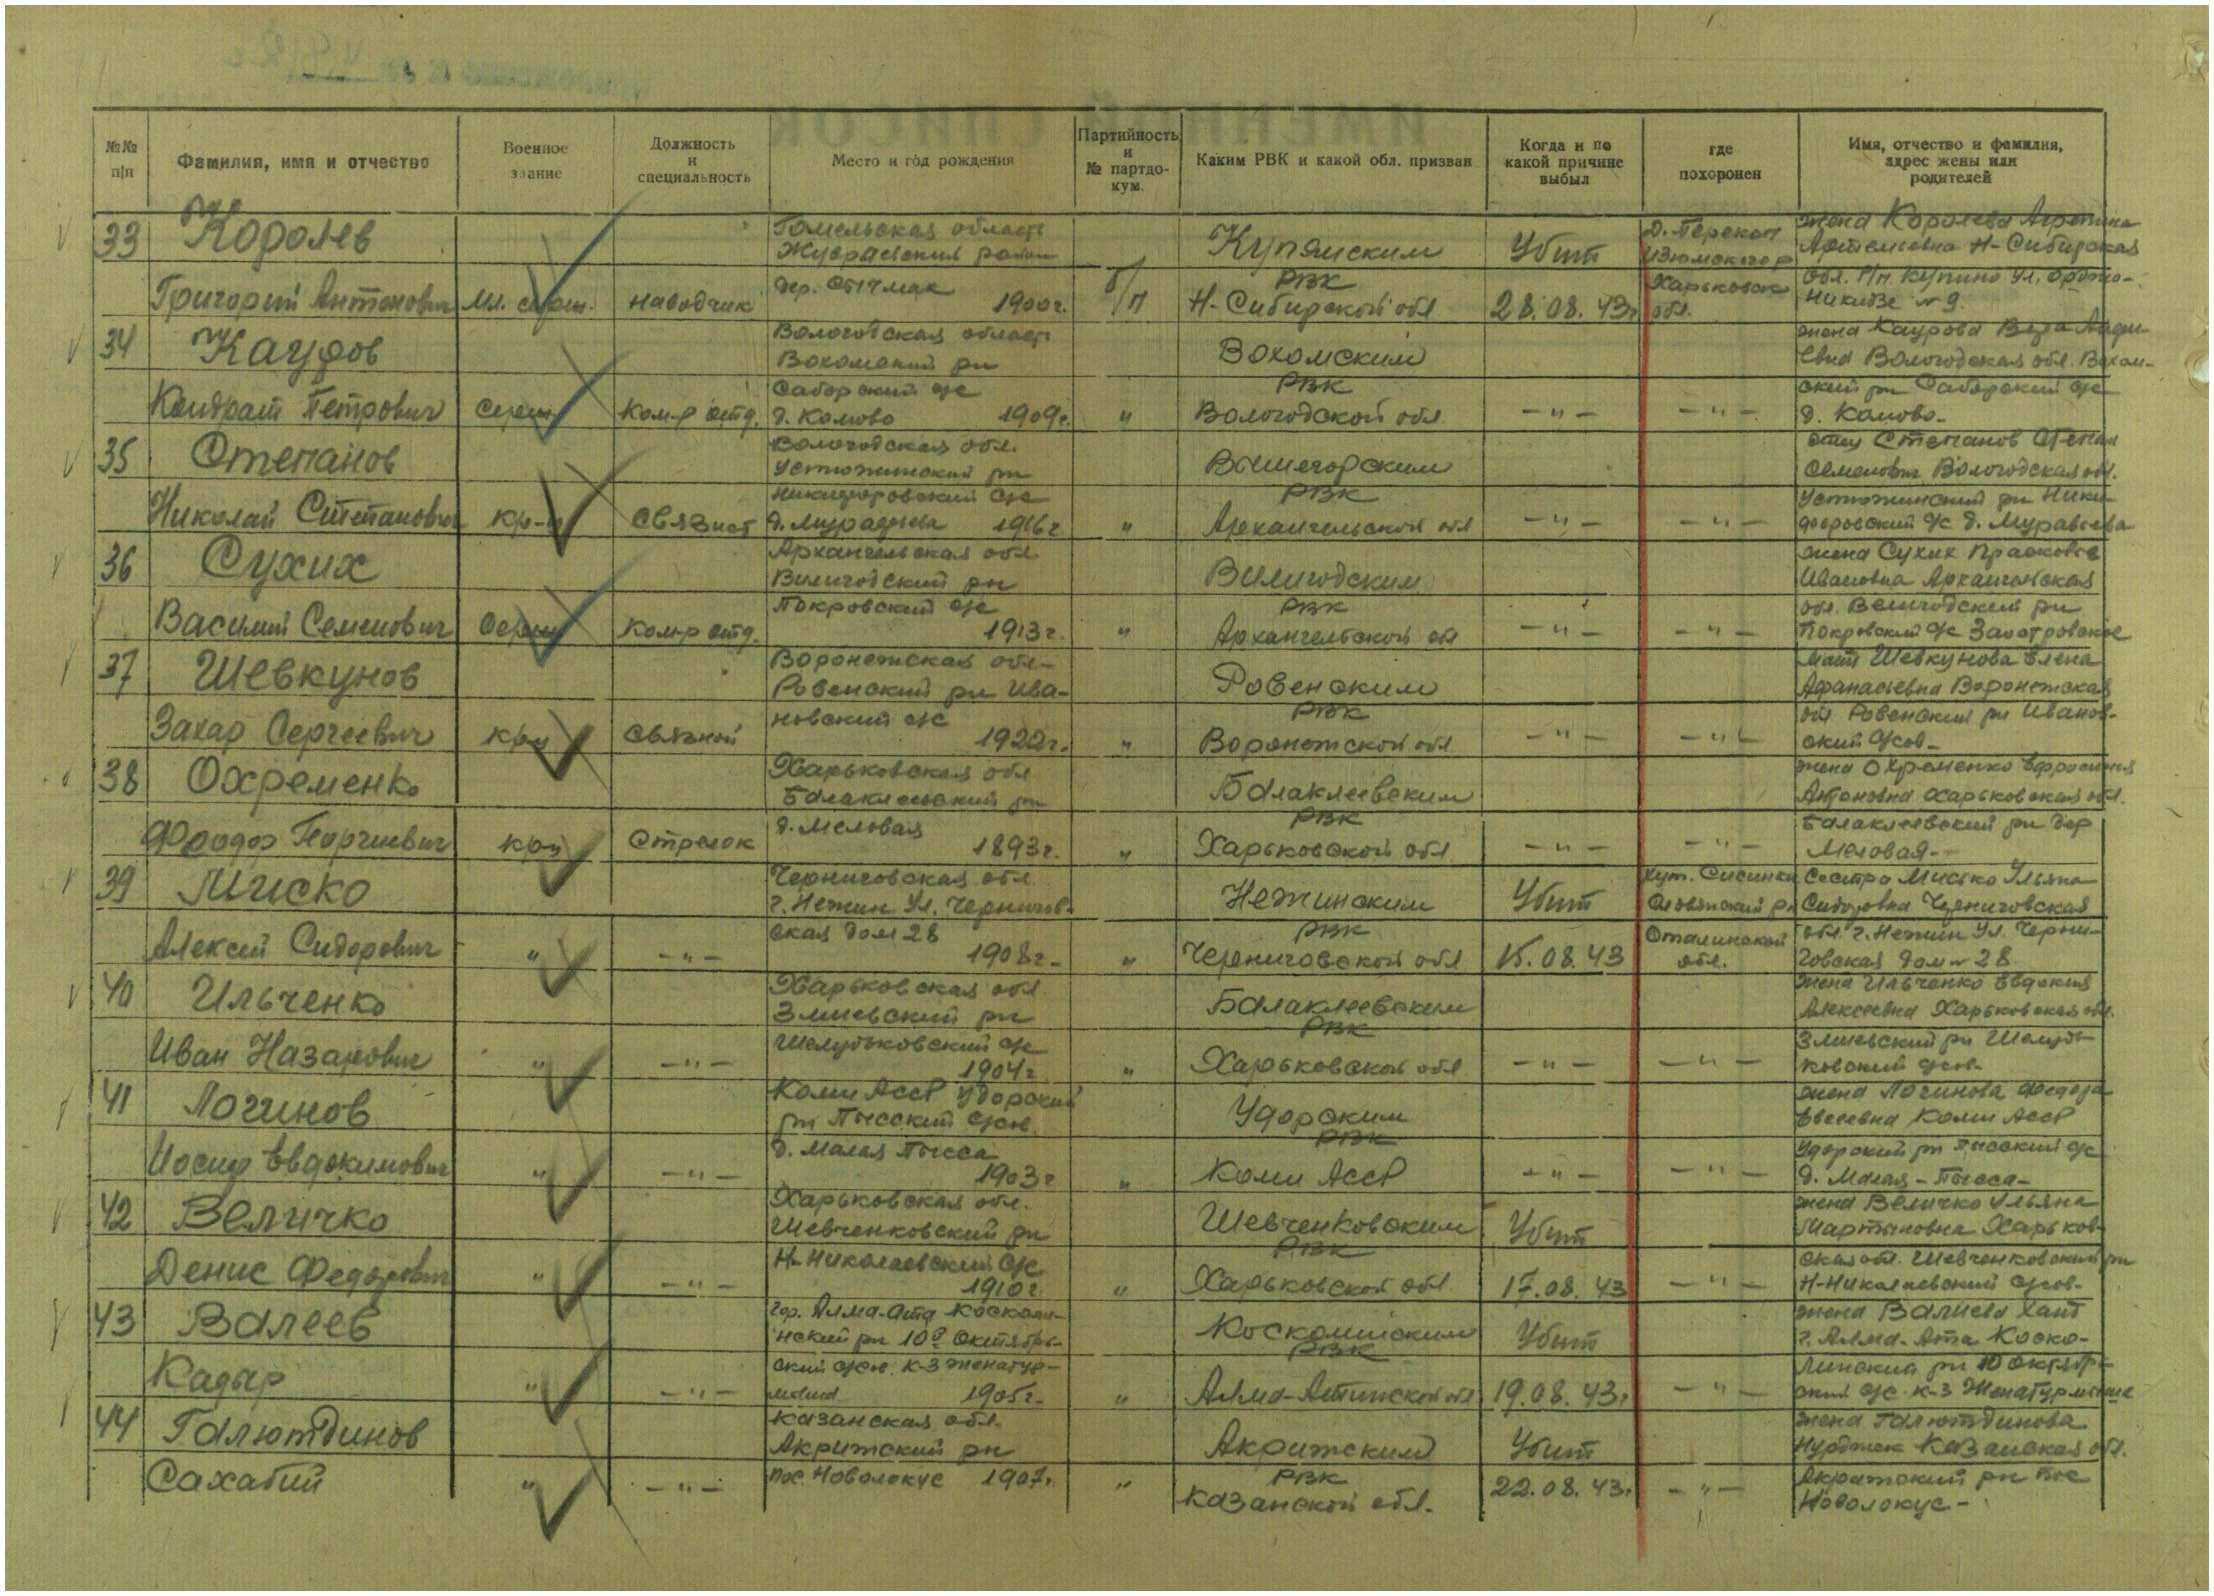 №№ п/п
Фамилия, имя и отчество
Военное звание
Должность и специальность
Место и год рождения
Партийность и № партдо-кум.
Каким РВК и какой обл. призван
Когда и по какой причине выбыл
где похоронен
Имя, отчество и фамилия, адрес жены или родителей
33 Королев Григорий Антонович
Мл. серж.
наводчик
Гомельская область
район
дер.
1900г.
б/п
Купянским
РВК
Н-Сибирской обл
Убит
28.08.43г
д. Перекоп
Изюмског р
Харьковск
обл.
жена Королева
Н-Сибирская
обл. г/п. Купино ул. Орджо-
Никидзе №9
34 Кауров Кондрат Петрович
Серж
Ком-р отд.
Вологодская область
Вохомский рн
с/с
д. Комово 1909г.
"
Вохомским
РВК
Вологодской обл
— " —
— " —
жена Каурова Вера
Вологодская обл. Вохом-
ский рн с/с
д. Комово-
35 Степанов Николай Степанович
кр-ц
Связист
Вологодская обл.
Устюжинский рн
Никифоровский с/с
1916г
"
Вышегорским
РВК
Архангельской обл
— " —
— " —
отец Степанов Степан
Семенович Вологодская обл.
Устюжинский рн Ники-
форовский с/с д. Муравьева
36 Сухих Василий Семенович
Серж
Ком-р отд.
Архангельская обл
Вилигодский рн
Покровский с/с
1913г.
"
Вилигодским
РВК
Архангельской обл
— " —
— " —
жена Сухих Прасковья
Ивановна Архангельская
обл. Вилигодский рн
Покровский с/с
37 Шевкунов Захар Сергеевич
кр-ц
Связной
Воронежская обл-
Ровенский рн Ива-
новский с/с
1922г.
"
Ровенским
РВК
Воронежской обл
— " —
— " —
мать Шевкунова Елена
Афанасьевна Воронежская
обл Ровенский рн Иванов-
ский с/сов-
38 Охременко Феодор Георгиевич
кр-ц
Стрелок
Харьковская обл
Балаклеевский рн
д. Меловая
1893г.
"
Балаклеевским
РВК
Харьковской обл
— " —
— " —
жена Охременко Ефросинья
Антоновна Харьковская обл.
Балаклеевский рн дер
Меловая-
39 Миско Алексей Сидорович
"
— " —
Черниговская обл
г. Нежин ул. Чернигов-
ская дом 28
1908г-
"
Нежинским
РВК
Черниговской обл
Убит
15.08.43
хут.
Славянский рн
Сталинской
обл.
Сестра Мисько Ульяна
Сидоровна Черниговская
обл. г. Нежин ул. Черни-
говская дом № 28
40 Ильченко Иван Назарович
"
— " —
Харьковская обл
Змиевский рн
Шелудьковский с/с
1904г
"
Балаклеевским
РВК
Харьковской обл
— " —
— " —
жена Ильченко Евдокия
Алексеевна Харьковская обл.
Змиевский рн Шелудь-
ковский с/сов-
41 Логинов Иосиф Евдокимович
"
— " —
Коми АссР Удорский
рн Пысский с/сов.
д. Малая Пысса
1903г
"
Удорским
РВК
Коми АссР
— " —
— " —
жена Логинова
Евсеевна Коми АссР
Удорский рн Пысский с/с
д. Малая-Пысса-
42 Величко Денис Федорович
"
— " —
Харьковская обл.
Шевченковский рн
Н-Николаевский с/с
1910г.
"
Шевченковским
РВК
Харьковской обл
Убит
17.08.43
— " —
жена Величко Ульяна
Мартыновна Харьков-
ская обл. Шевченковский рн
Н-Николаевский с/сов-
43 Валеев Кадыр
"
— " —
гор. Алма-Ата
нский рн 10й Октябрь-
ский с/сов. к-з
1905г-
"
РВК
Алма-Атинской обл
Убит
19.08.43г
— " —
жена Валиева
г. Алма-Ата Коско-
линский рн 10 Октябрь-
ский с/с к-з
44 Галютдинов Сахабий
"
— " —
Казанская обл.
Акрижский рн
пос. Новолокус 1907г.
"
Акрижским
РВК
Казанской обл.
Убит
22.08.43г
— " —
жена Галютдинова
Казанская обл.
Акрижский рн пос
Новолокус-